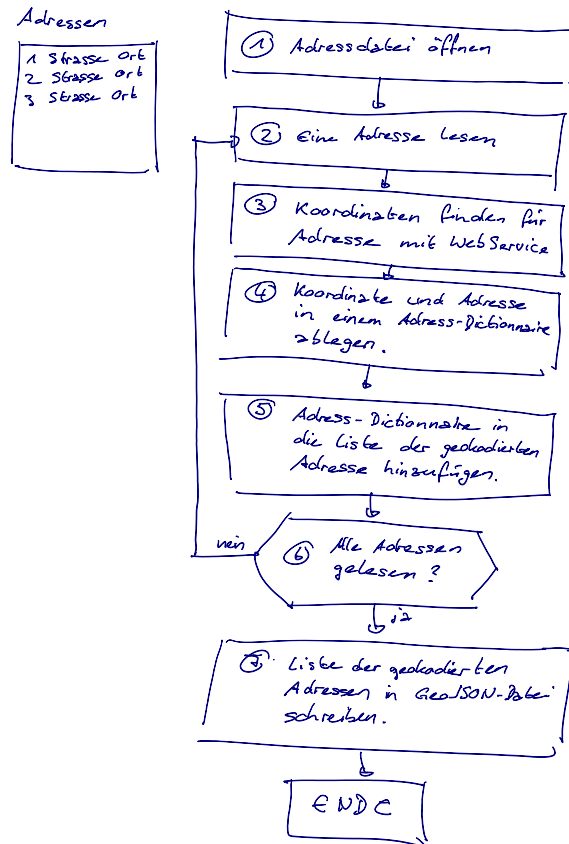 Adressen
1 Strasse Ort
2 Strasse Ort
3 Strasse Ort
1 Adressdatei öffnen
2 Eine Adresse lesen
3 Koordinaten finden für
Adresse mit WebService
4 Koordinate und Adresse
in einem Adress-Dictionnaire
ablegen.
5 Adress-Dictionnaire in
die Liste der geokodierten
Adresse hinzufügen.
nein
6 Alle Adressen
gelesen?
ja
7 Liste der geokodierten
Adressen in GeoJSON-Datei
schreiben.
ENDE